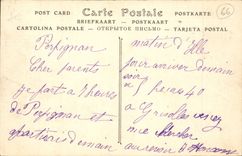 POST CARD Carte Postale POSTKARTE
BRIEFKAART POSTKARTE
CARTOLINA POSTALE ОТКРЫТОЕ ПИСЬМО TARJETA POSTAL
66
Perpignan
Cher parents
je part a 1 heures
de Perpignan et
demain
matin d'Elle
pour arriver demain
7 heures 40
a venez
me chercher
au revoir a